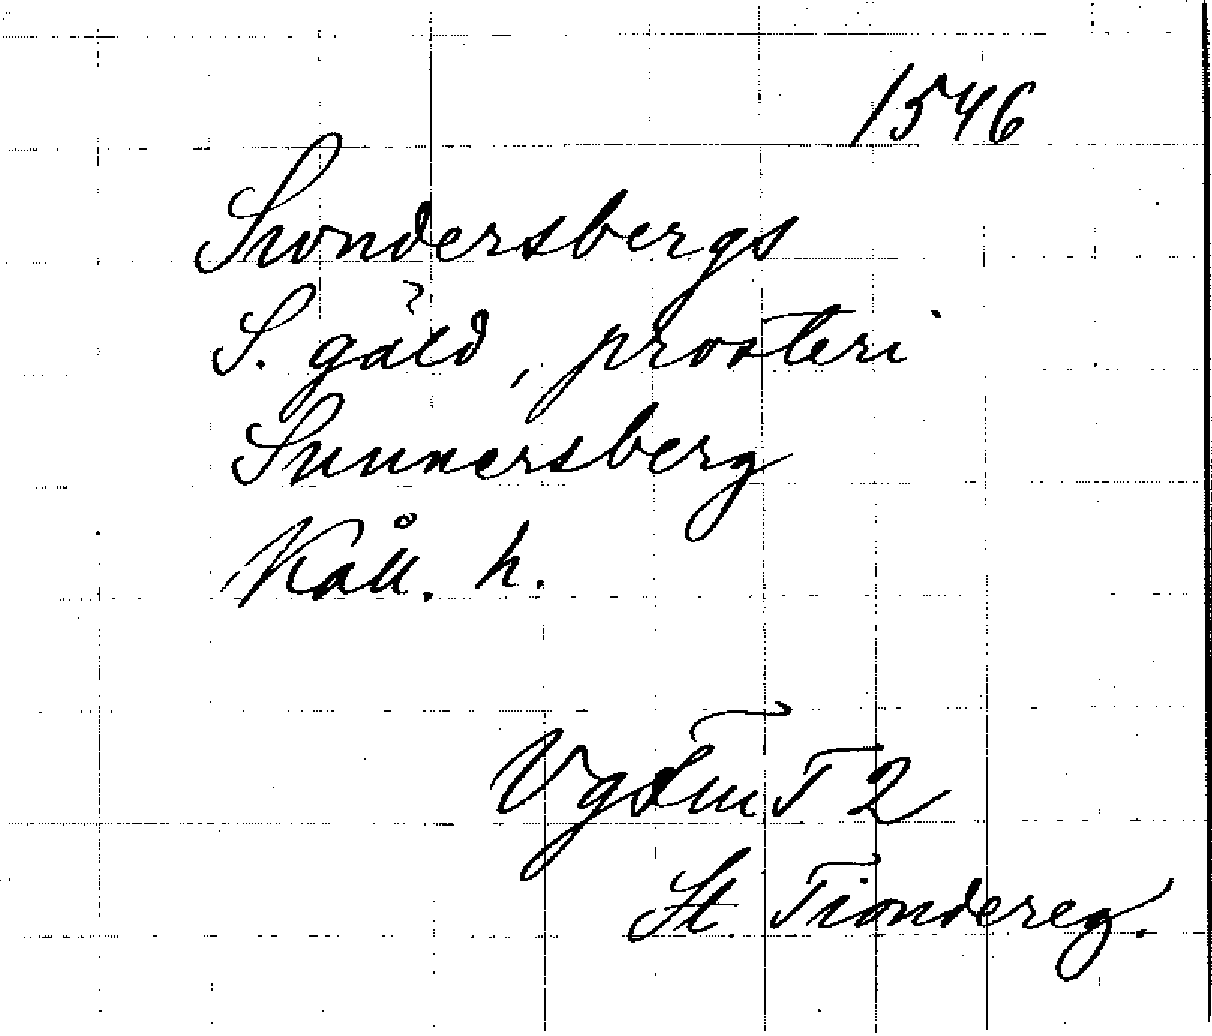 1546
Swndersbergs
S. gäld, prosteri
Sunnersberg
Kåll. h.
Vgötl T 2
St. Tiondereg.